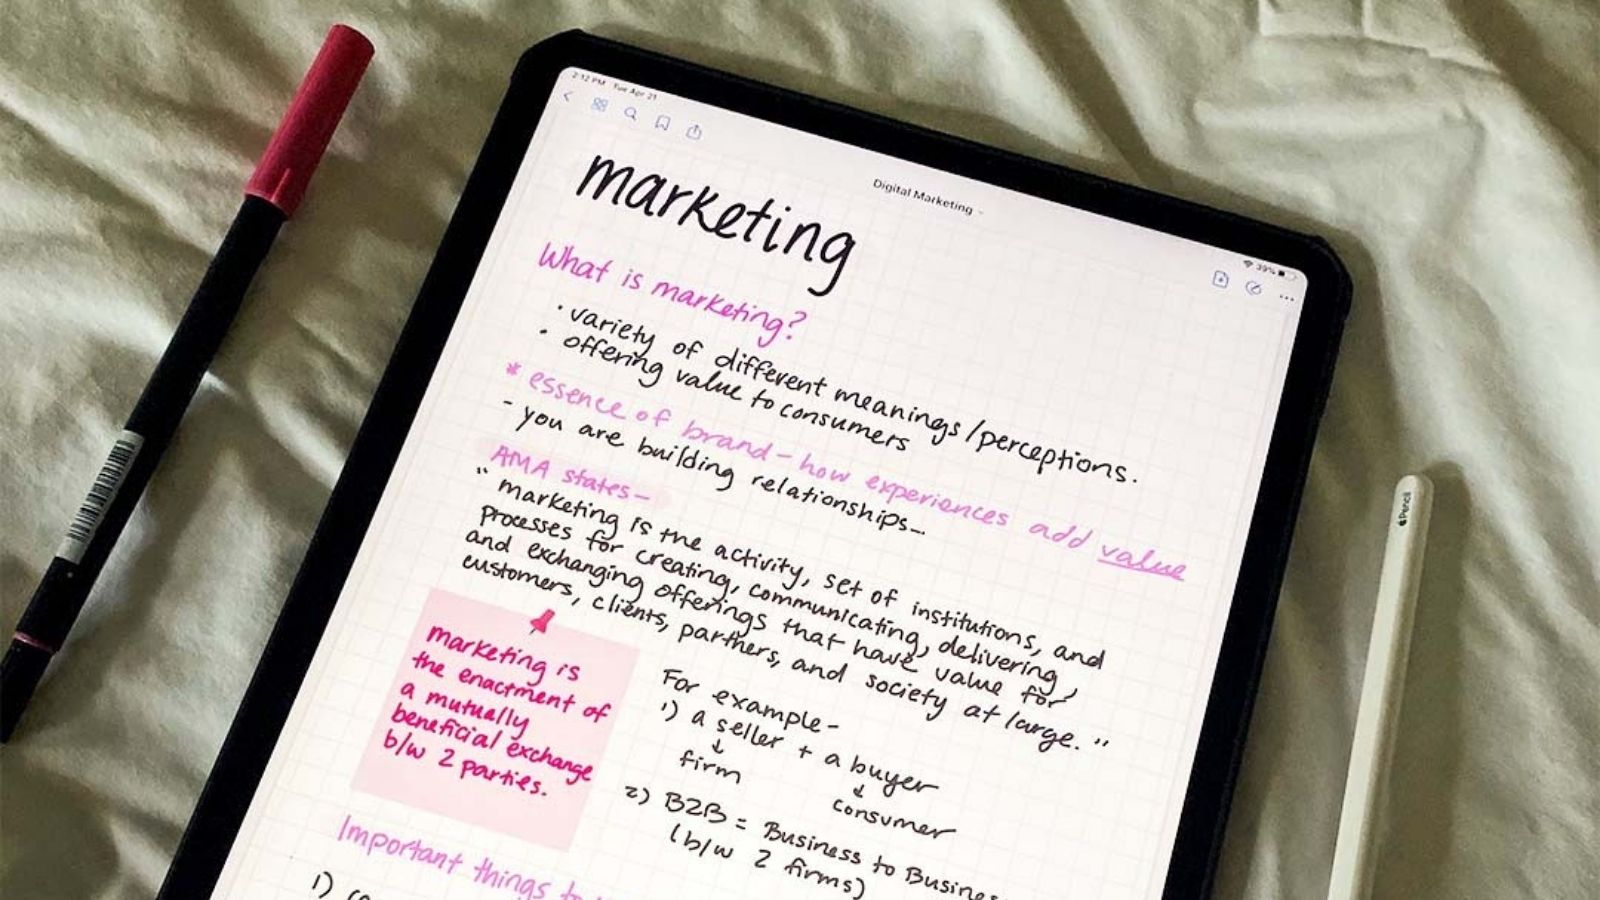 2:12 PM Tue Apr 21
Digital Marketing
39%
marketing
What is marketing?
· variety of different meanings/perceptions.
· offering value to consumers
* essence of brand - how experiences add value
- you are building relationships-
AMA states-
" marketing is the activity, set of institutions, and
processes for creating, communicating, delivering,
and exchanging offerings that have value for
customers, clients, partners, and society at large. "
marketing is
the enactment of
a mutually
beneficial exchange
b/w 2 parties.
For example-
1) a seller + a buyer
↓ ↓
firm consumer
2) B2B = Business to Busines
(b/w 2 firms)
Important things to
1)
Pencil